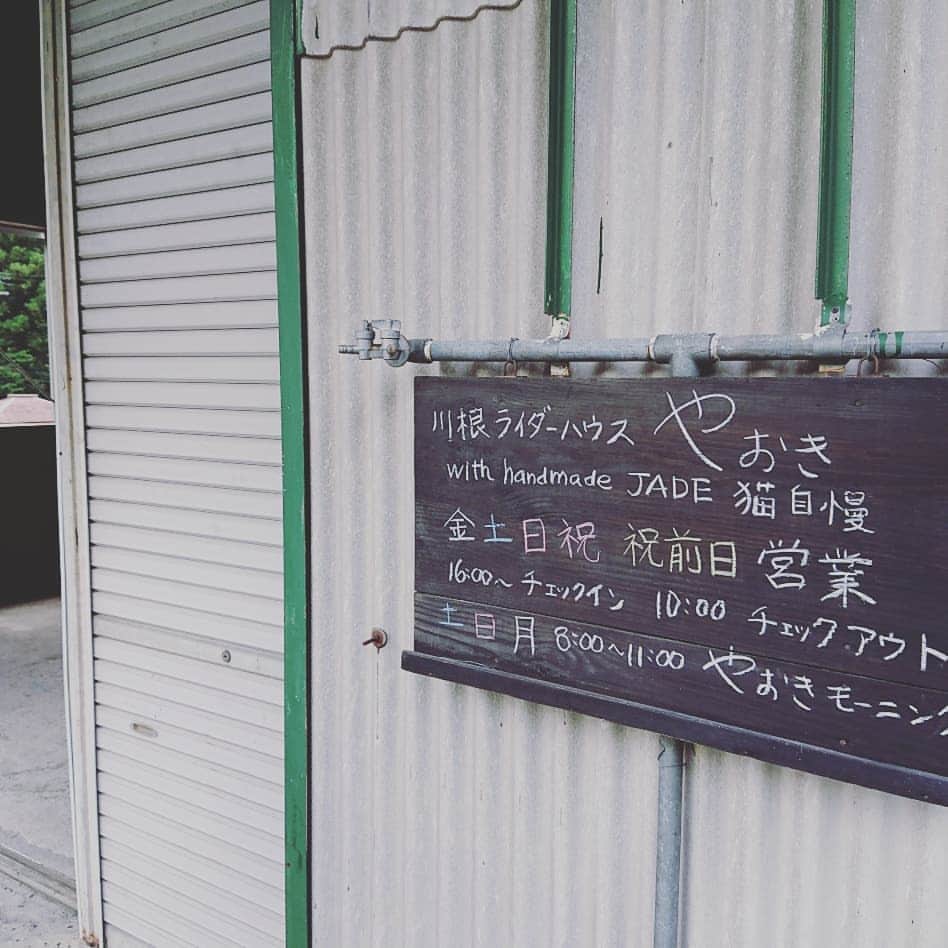 川根ライダーハウス やおき
with handmade JADE 猫自慢
金土日祝 祝前日 営業
16:00~チェックイン 10:00 チェックアウト
土日月 8:00~11:00 やおきモーニング